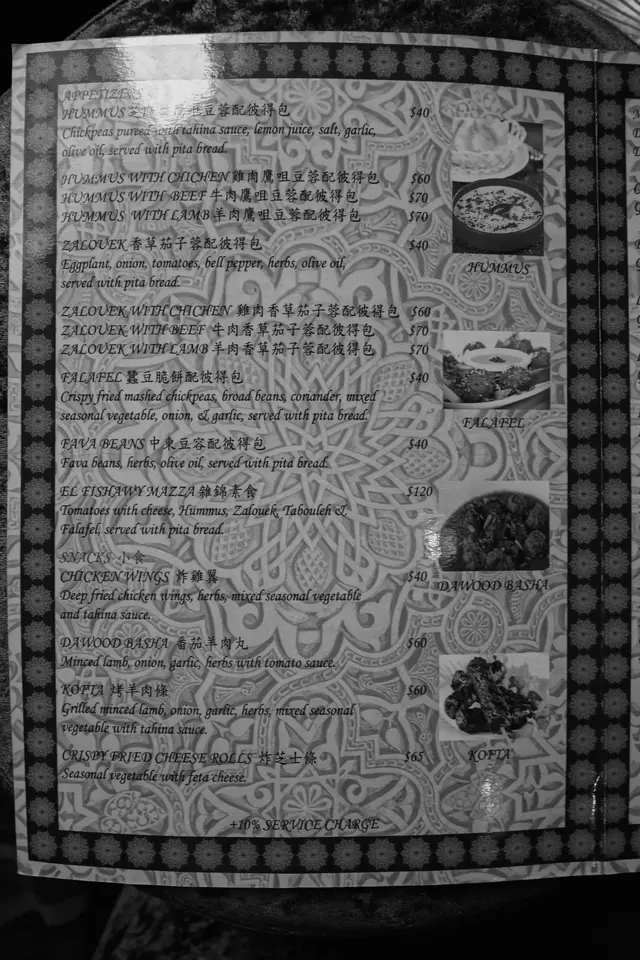 APPETIZERS
HUMMUS 芝麻鷹咀豆蓉配彼得包 $40
Chickpeas pureea with tahina sauce, lemon juice, salt, garlic,
olive oil, served with pita bread.
HUMMUS WITH CHICHEN 雞肉鷹咀豆蓉配彼得包 $60
HUMMUS WITH BEEF 牛肉鷹咀豆蓉配彼得包 $70
HUMMUS WITH LAMB 羊肉鷹咀豆蓉配彼得包 $70
ZALOUEK 香草茄子蓉配彼得包 $40
Eggplant, onion, tomatoes, bell pepper, herbs, olive oil,
served with pita bread.
HUMMUS
ZALOUEK WITH CHICHEN 雞肉香草茄子蓉配彼得包 $60
ZALOUEK WITH BEEF 牛肉香草茄子蓉配彼得包 $70
ZALOUEK WITH LAMB 羊肉香草茄子蓉配彼得包 $70
FALAFEL 蠶豆脆餅配彼得包 $40
Crispy fried mashed chickpeas, broad beans, coriander, mixed
seasonal vegetable, onion, & garlic, served with pita bread.
FALAFEL
FAVA BEANS 中東豆容配彼得包 $40
Fava beans, herbs, olive oil, served with pita bread.
EL FISHAWY MAZZA 雜錦素食 $120
Tomatoes with cheese, Hummus, Zalouek, Tabouleh &
Falafel, served with pita bread.
SNACKS 小食
CHICKEN WINGS 炸雞翼 $40
DAWOOD BASHA
Deep fried chicken wings, herbs, mixed seasonal vegetable
and tahina sauce.
DAWOOD BASHA 番茄羊肉丸 $60
Minced lamb, onion, garlic, herbs with tomato sauce.
KOFTA 烤羊肉條 $60
Grilled minced lamb, onion, garlic, herbs, mixed seasonal
vegetable with tahina sauce.
CRISPY FRIED CHEESE ROLLS 炸芝士條 $65
KOFTA
Seasonal vegetable with feta cheese.
+10% SERVICE CHARGE